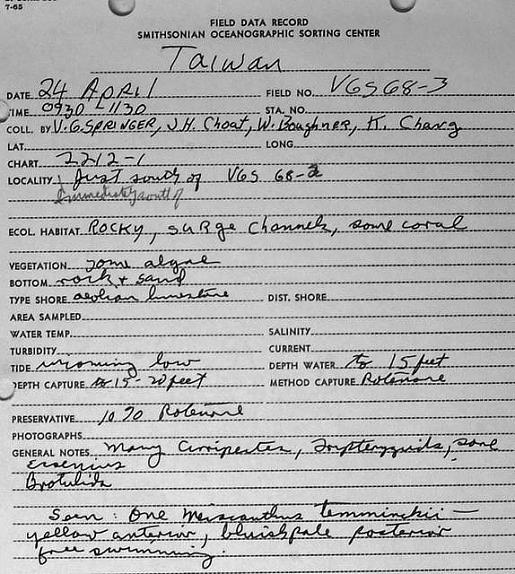 7-65
FIELD DATA RECORD
SMITHSONIAN OCEANOGRAPHIC SORTING CENTER
Taiwan
DATE 24 APRIL FIELD NO. VGS 68-3
TIME 0930-1130 STA. NO.
COLL. BY V.G. SPRINGER, J.H. Choat, W. Boughner, K. Chang
LAT. LONG.
CHART 2212-1
LOCALITY Just south of VGS 68-2
Immediately south of
ECOL. HABITAT Rocky, surge channels, some coral
VEGETATION some algae
BOTTOM rock + sand
TYPE SHORE aeolian limestone DIST. SHORE
AREA SAMPLED
WATER TEMP. SALINITY
TURBIDITY CURRENT
TIDE incoming low DEPTH WATER to 15 feet
DEPTH CAPTURE to 15-20 feet METHOD CAPTURE Rotenone
PRESERVATIVE 10% Rotenone
PHOTOGRAPHS
GENERAL NOTES Many Cirripectes, Tripterygiids, some
Ecsenius
Brotulids
Seen: One Meiacanthus temminckii -
yellow anterior, bluish pale posterior
free swimming.